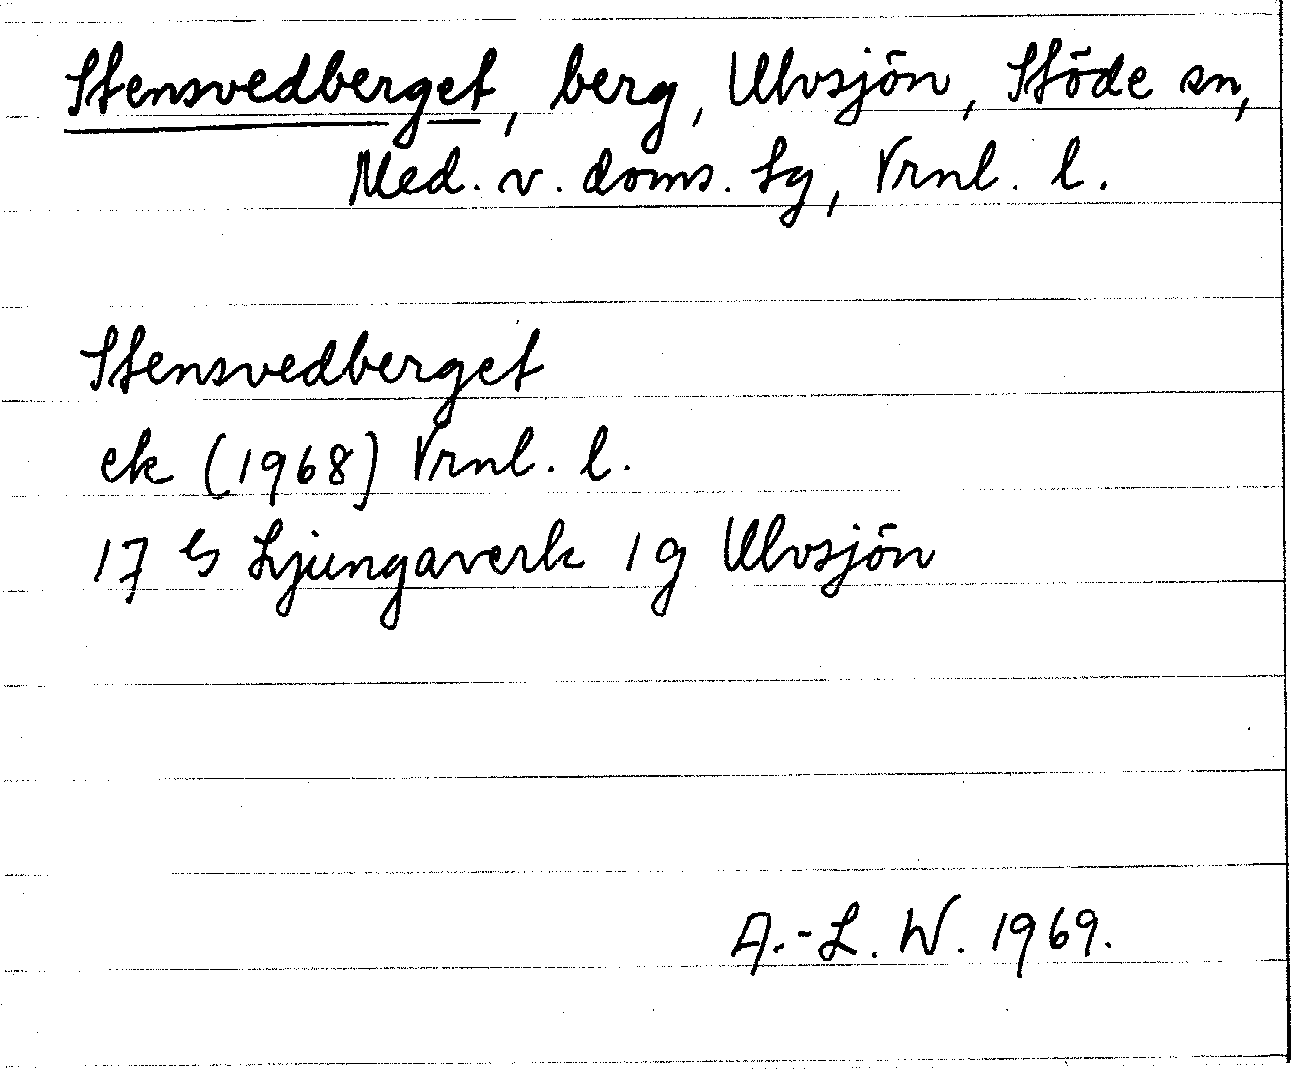 Stensvedberget, berg, Ulvsjön, Stöde sn,
Med. v. doms. lg, Vrnl. l.
Stensvedberget
ek (1968) Vrnl. l.
17 G Ljungaverk 1 g Ulvsjön
A.-L. W. 1969.